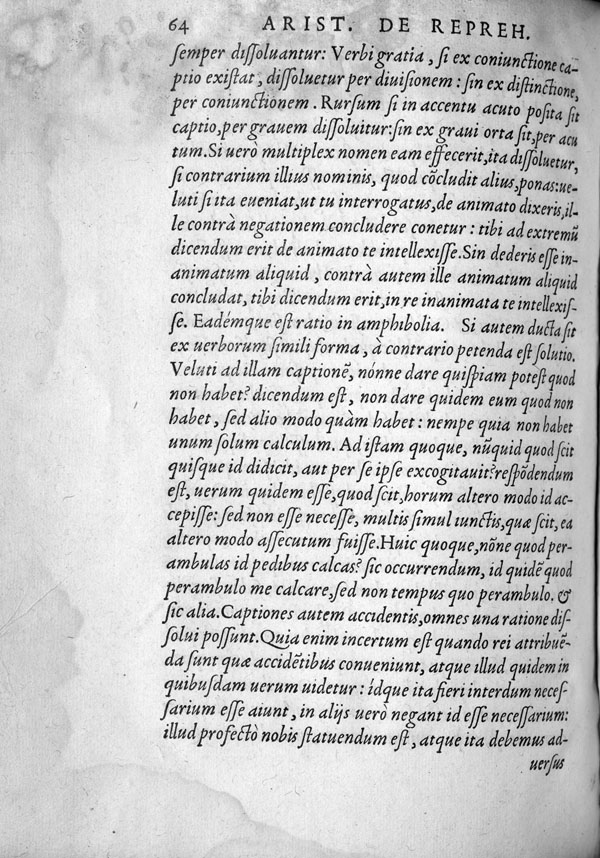 64 ARIST. DE REPREH.
semper dissoluantur: Verbi gratia, si ex coniunctione ca-
ptio existat, dissoluetur per diuisionem: sin ex distinctione,
per coniunctionem. Rursum si in accentu acuto posita sit
captio, per grauem dissoluitur: sin ex graui orta sit, per acu
tum. Si uerò multiplex nomen eam effecerit, ita dissoluetur,
si contrarium illius nominis, quod cõcludit alius, ponas: ue-
luti si ita eueniat, ut tu interrogatus, de animato dixeris, il-
le contrà negationem concludere conetur: tibi ad extremũ
dicendum erit de animato te intellexisse. Sin dederis esse in-
animatum aliquid, contrà autem ille animatum aliquid
concludat, tibi dicendum erit, in re inanimata te intellexis-
se. Eadémque est ratio in amphibolia. Si autem ducta sit
ex uerborum simili forma, à contrario petenda est solutio.
Veluti ad illam captionẽ, nónne dare quispiam potest quod
non habet? dicendum est, non dare quidem eum quod non
habet, sed alio modo quàm habet: nempe quia non habet
unum solum calculum. Ad istam quoque, nũquid quod scit
quisque id didicit, aut per se ipse excogitauit? respõdendum
est, uerum quidem esse, quod scit, horum altero modo id ac-
cepisse: sed non esse necesse, multis simul iunctis, quæ scit, ea
altero modo assecutum fuisse. Huic quoque, nõne quod per-
ambulas id pedibus calcas? sic occurrendum, id quidẽ quod
perambulo me calcare, sed non tempus quo perambulo. &
sic alia. Captiones autem accidentis, omnes una ratione dis-
solui possunt. Quia enim incertum est quando rei attribuẽ-
da sunt quæ accidẽtibus conueniunt, atque illud quidem in
quibusdam uerum uidetur: ídque ita fieri interdum neces-
sarium esse aiunt, in alijs uerò negant id esse necessarium:
illud profectò nobis statuendum est, atque ita debemus ad-
uersus